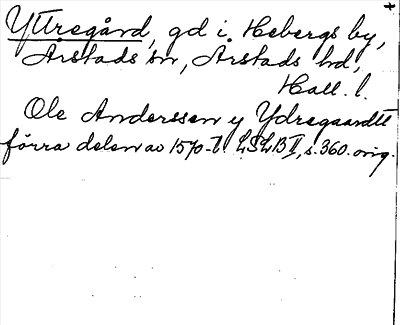 Yttregård, gd i Hebergs by,
Årstads sn, Årstads hd,
Hall. l.
Ole Anderssen y Ydregaardtt
förra delen av 1570-t. LSLB II, s. 360. orig.